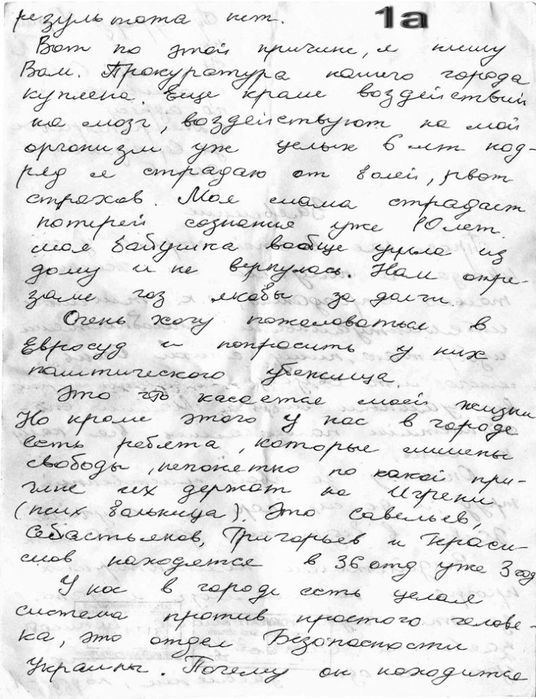 1а
результата нет.
Вот по этой причине, я пишу
Вам. Прокуратура нашего города
куплена. Еще кроме воздействий
на мозг, воздействуют на мой
организм уже целых 6 лет под-
ряд я страдаю от болей, рвот
страхов. Моя мама страдает
потерей сознания уже 10 лет.
моя бабушка вообще ушла из
дому и не вернулась. Нам отре-
зали газ якобы за долги.
Очень хочу пожаловаться в
Евросуд и попросить у них
политического убежища.
Это что касается моей жизни
Но кроме этого у нас в городе
есть ребята, которые лишены
свободы, непонятно по какой при-
чине их держат на Игрени
(псих больница). Это Савельев,
Севастьянов, Григорьев и Краси-
снов находятся в 36 отд уже 3 год
У нас в городе есть целая
система против простого челове-
ка, это отдел Безопасности
Украины. Почему он находится